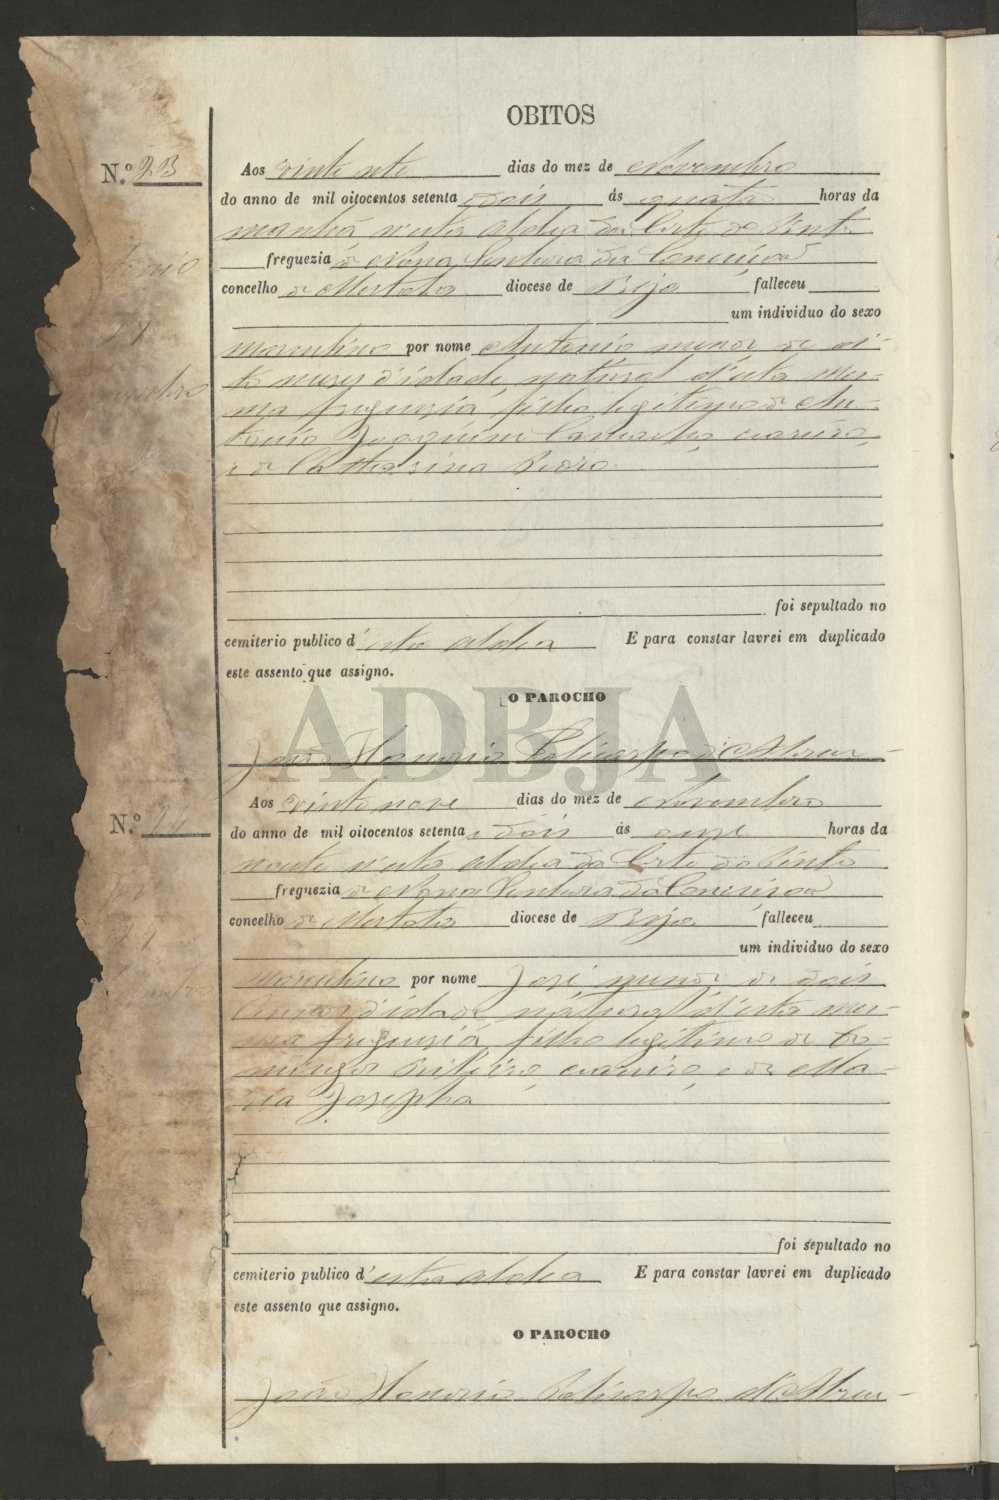 OBITOS
N.º 23
Aos vinte sete dias do mez de Novembro
do anno de mil oitocentos setenta e dois ás quatro horas da
manhã n'esta aldeia da Corte do Pinto
freguezia de Nossa Senhora da Conceição
concelho de Mertola diocese de Beja falleceu
um individuo do sexo
masculino por nome Antonio menor de oi-
to mezes d'idade, natural d'esta mes-
ma freguezia, filho legitimo de An-
tonio Joaquim
e de Catharina
foi sepultado no
cemiterio publico d'esta aldeia E para constar lavrei em duplicado
este assento que assigno.
O PAROCHO
João Honorio Policarpo d'Abreu
ADBJA
N.º 24
Aos vinte nove dias do mez de Novembro
do anno de mil oitocentos setenta e dois ás onze horas da
noute n'esta aldeia da Corte do Pinto
freguezia de Nossa Senhora da Conceição
concelho de Mertola diocese de Beja falleceu
um individuo do sexo
masculino por nome José menor de dois
annos d'idade, natural d'esta mes-
ma freguezia, filho legitimo de Do-
mingos e de Ma-
ria Josepha
foi sepultado no
cemiterio publico d'esta aldeia E para constar lavrei em duplicado
este assento que assigno.
O PAROCHO
João Honorio Policarpo d'Abreu